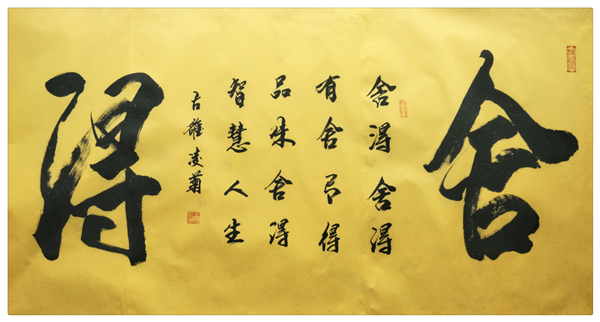 舍
舍得舍得
有舍得
品味舍得
智慧人生
古雒凌菊
得